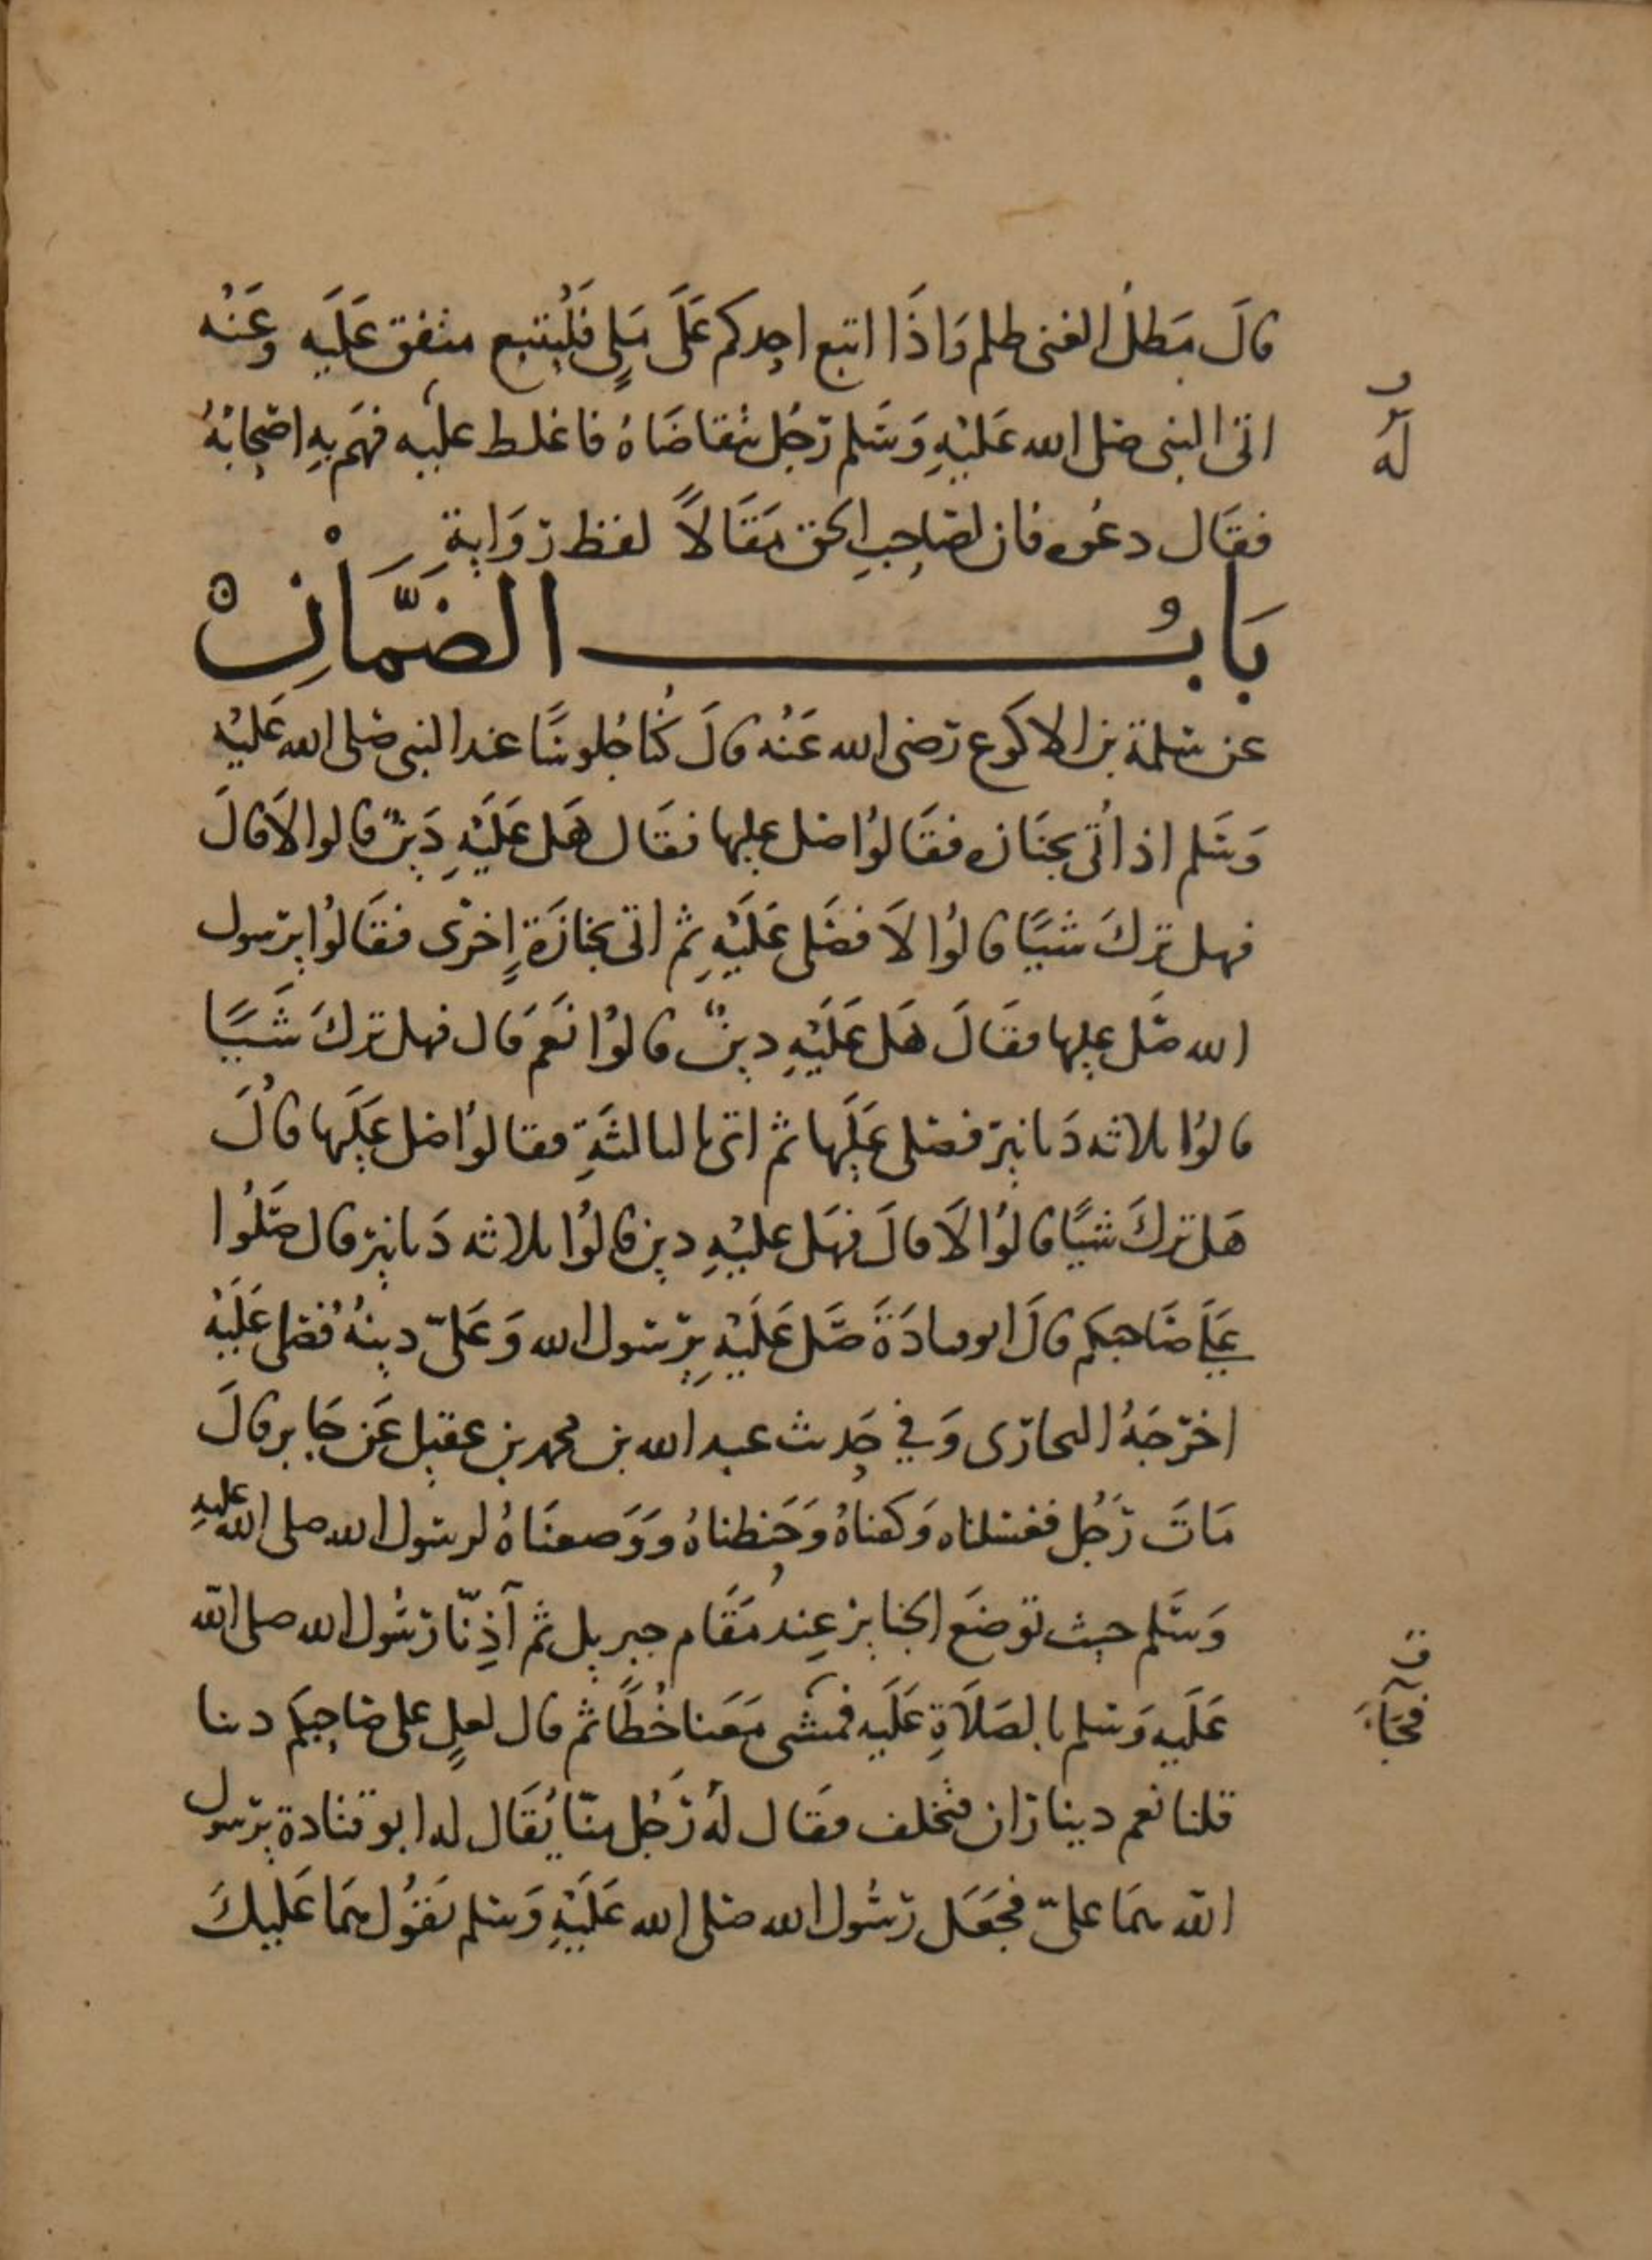 قالَ مَطلُ الغنى ظلم وَاذَا اتبع احدكم عَلَى مَلىٍ فَليُتبع متفق عَلَيه وعَنْه
اتى النبى صلى الله عَليْهِ وَسَلم رَجُل يتقاضَاهُ فاغلط عليه فهَم بهِ اصْحابُهُ
فقَال دعُوه فان لصَاحِبِ الحق مَقَالاً لفظ رِوَايةِ
بَابُ الضَمَّانِ
عن سَلمة بن الاكوع رَضى الله عَنْه قالَ كُنا جُلوسًا عند النبى صَلى الله عَليْه
وَسَلم اذ اُتى بجنَازه فقَالوُا صَل عليها فقَال هَل عَلَيْهِ دَينٌ قالوا لاَ قالَ
فهل تركَ شيًا قالوُا لاَ فصَلى عَلَيْهِ ثم اتى بجنازَةٍ اخرَى فقَالوُا يرسول
الله صَل عليها فقَالَ هَل عَلَيْهِ دينٌ قالوُا نَعَم قَال فهل تركَ شَيًا
قالوُا ثلاثه دَنانير فصَلى عَلَيها ثم اتى بالثالثَةِ فقالوُا صَل عَلَيها قالَ
هَل تركَ شيًا قالوُا لاَ قالَ فهَل عليْهِ دين قالوُا ثلاثه دَنانير قال صَلوُا
عَلَى صَاحبكم قالَ ابو قتادَةَ صَل عَلَيْهِ يرَسول الله وَعَلىّ دينُهُ فصَلى عَلَيْه
اخرَجَهُ البخارى وَفي حَدِيث عبد الله بن محمد بن عقيل عَن جَابر قالَ
مَاتَ رَجُل فغسلناه وَكفناهُ وَحَنطناهُ وَوَضعنَاهُ لرسول الله صلى الله عليه
وَسَلم حيث توضَع الجنايز عِند مَقَام جبريل ثم آذنّا رَسُول الله صلى الله
عَلَيه وَسَلم بالصَلَاةِ عَلَيه فمَشى مَعَنا خُطًا ثم قال لعل على صَاحِبكم دينا
قلنا نعم دينارَان فتخلف فقَال لهُ رَجُل منّا يُقَال له ابو قتادة يرَسول
الله همَا علىّ فجَعَل رَسُول الله صَلى الله عَلَيْهِ وَسَلم يَقوُل همَا عَليكَ
له
ق
فجَاءَ